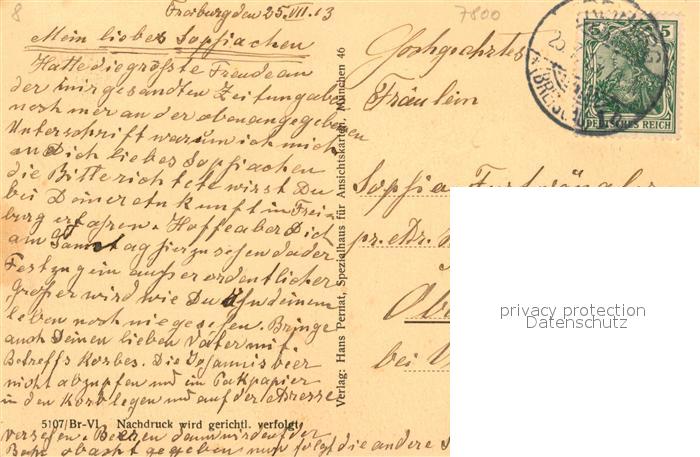 8
Freiburg den 25.VII.13
7800
Mein liebes Sopfiachen
Hatte die größte Freude an
der mir gesandten Zeitung aber
noch mer an der oben angegeben
Unterschrift warum ich mich
an Dich liebes Sopfiachen
die Bitte richtete wirst Du
bei Deiner Ankunft in Frei-
burg erfaren. Hoffe aber Dich
am Samstag hier zu sehen da der
Festzug ein außer ordentlicher
großer wird wie Du in deinem
leben noch nie gesehen. Bringe
auch Deinen lieben Vater mit.
Betreffs Korbes. Die Johannisbeer
nicht abzupfen und im Pakpapier
in den Korb legen und auf der Adresse
versehen. Beeren dann wird auf der
Bahn obacht gegeben nun folgt die andere S
5107/Br-VI Nachdruck wird gerichtl. verfolgt
Verlag: Hans Pernat, Spezialhaus für Ansichtskarten, München 46
Hochgeehrtes
Fräulein
Sopfia
pr. Adr.
Ob
bei
5 5
DEUTSCHES REICH
privacy protection
Datenschutz